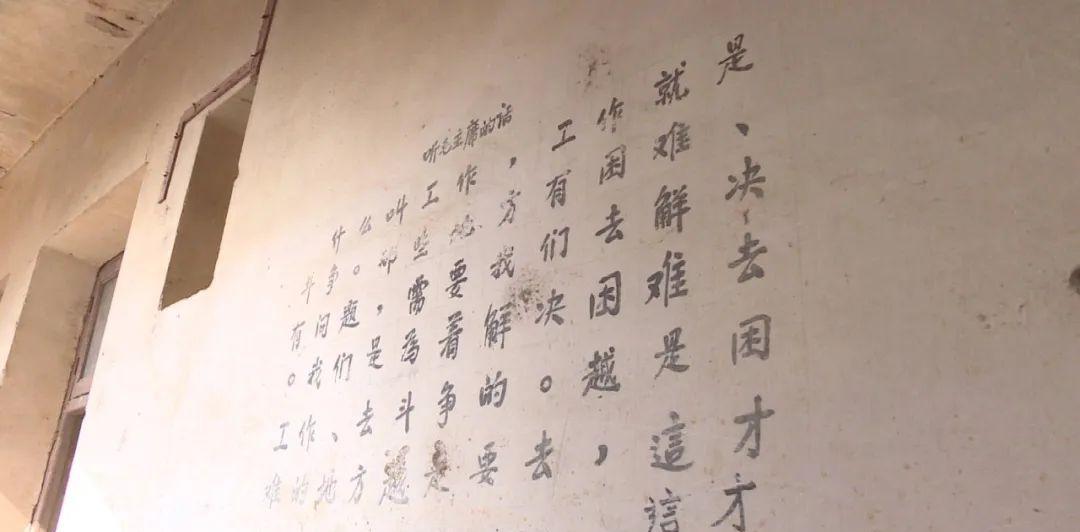 听毛主席的话
什么叫工作，工作就是
斗争。那些地方有困难、
有问题，需要我们去解决
。我们是为着解决困难去
工作、去斗争的。越是困
难的地方越是要去，這才
這才